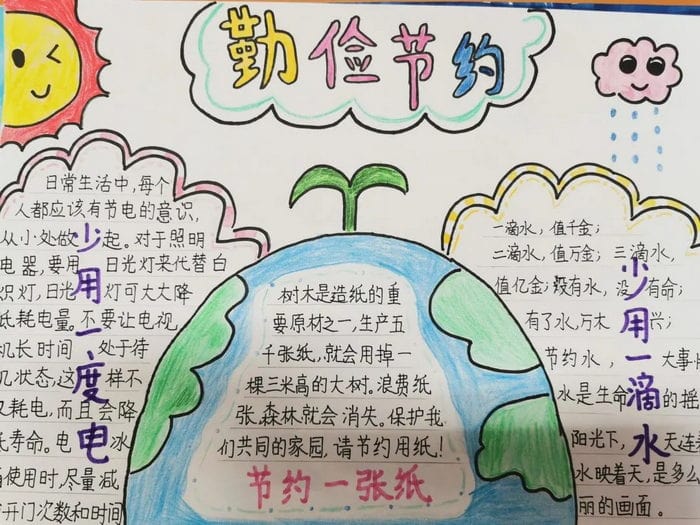 勤俭节约
日常生活中,每个
人都应该有节电的意识,
从小处做起。对于照明
电器,要用 日光灯来代替白
炽灯,日光灯可大大降
低耗电量。不要让电视
机长时间 处于待
机状态,这样不
仅耗电,而且会降
低寿命。电冰
使用时,尽量减
开门次数和时间
少用一度电
树木是造纸的重
要原材之一,生产五
千张纸,就会用掉一
棵三米高的大树。浪费纸
张,森林就会消失。保护我
们共同的家园,请节约用纸!
节约一张纸
一滴水,值千金;
二滴水,值万金;三滴水,
值亿金;没有水,没有命;
有了水,万木 兴;
节约水, 大事
水是生命的摇
阳光下, 天连
水映着天,是多么
丽的画面。
少用一滴水